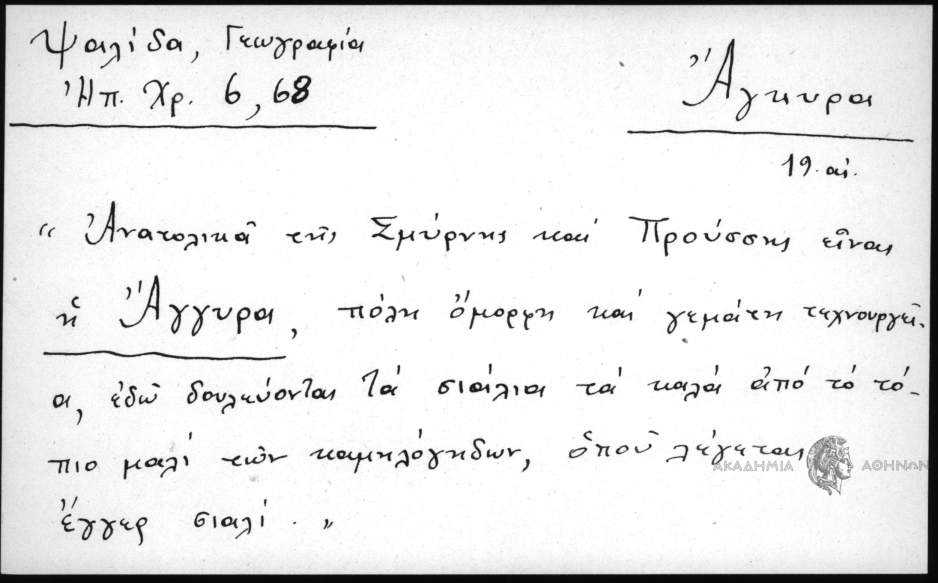 Ψαλίδα, Γεωγραφία
Ἠπ. Χρ. 6, 68
Ἄγκυρα
19. αἰ.
“ Ἀνατολικᾶ τῆς Σμύρνης καί Προύσσης εἶναι
ἡ Ἄγγυρα, πόλη ὄμορφη καί γεμάτη τεχνουργεῖ-
α, ἐδῶ δουλεύονται τά σιάλια τά καλά ἀπό τό τό-
πιο μαλί τῶν καμηλόγηδων, ὁποῦ λέγεται
ἔγγερ σιαλί. „
ΑΚΑΔΗΜΙΑ ΑΘΗΝΩΝ